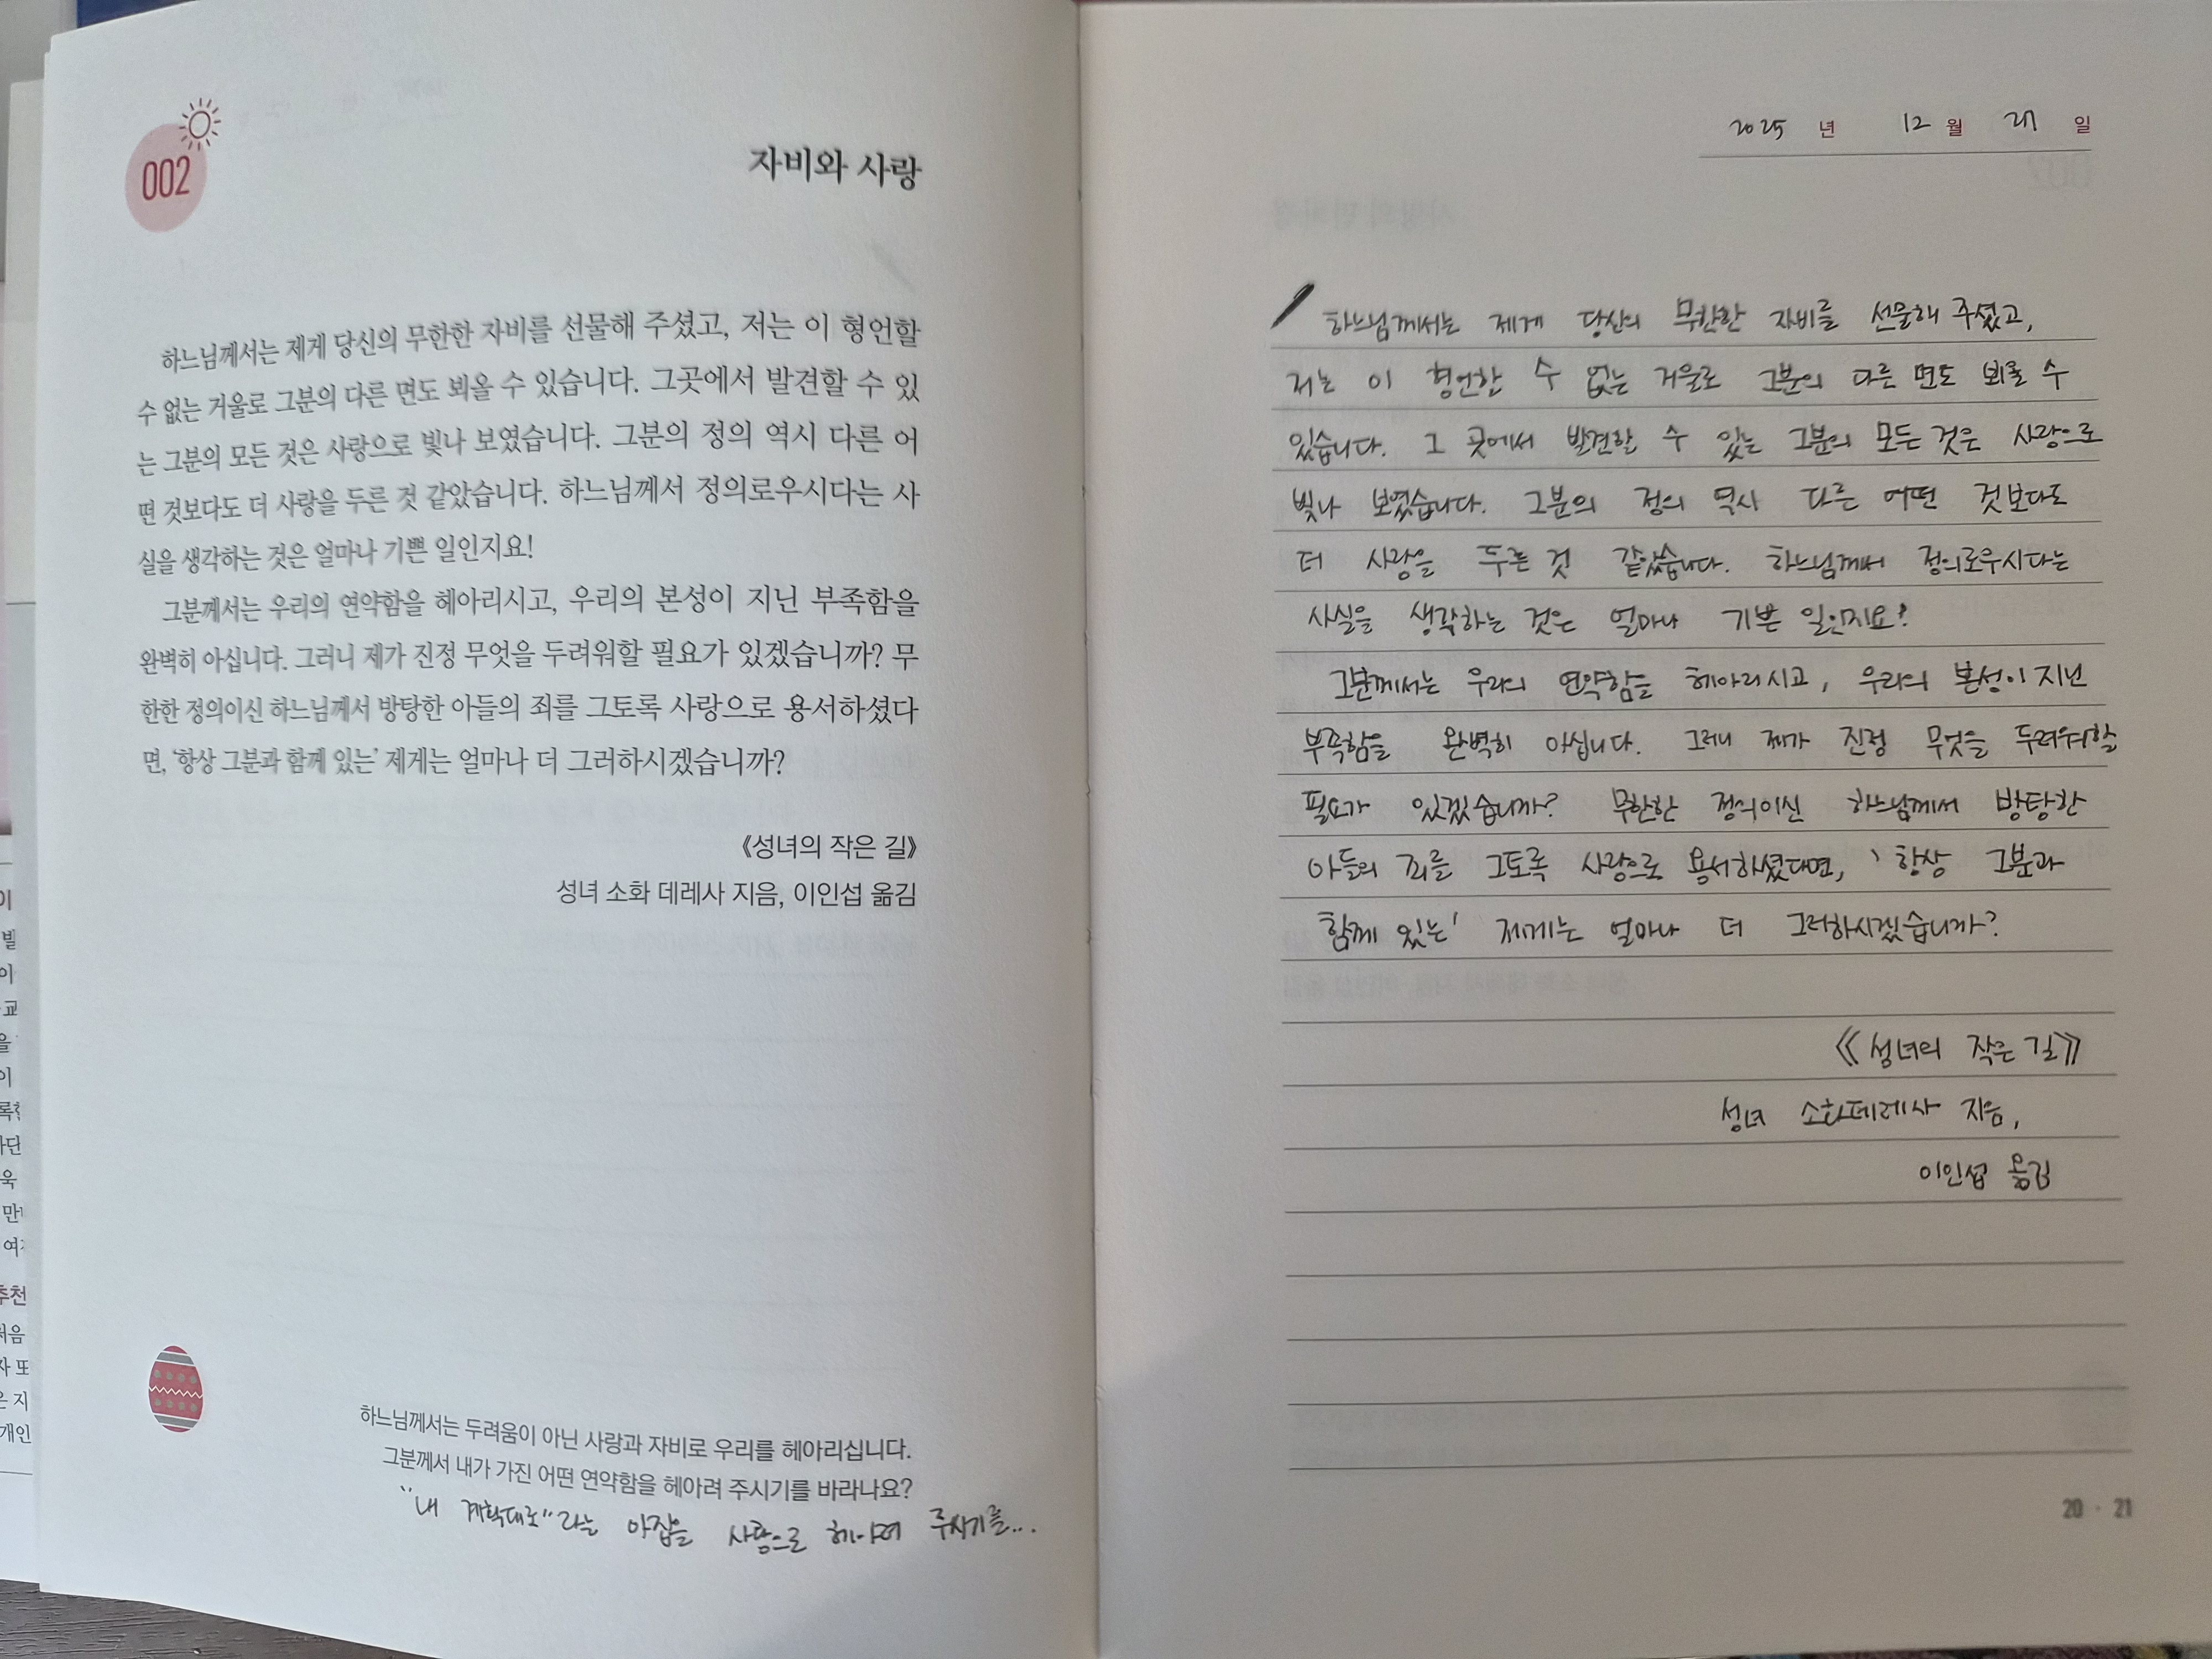 002
자비와 사랑
하느님께서는 제게 당신의 무한한 자비를 선물해 주셨고, 저는 이 형언할
수 없는 거울로 그분의 다른 면도 뵈올 수 있습니다. 그곳에서 발견할 수 있
는 그분의 모든 것은 사랑으로 빛나 보였습니다. 그분의 정의 역시 다른 어
떤 것보다도 더 사랑을 두른 것 같았습니다. 하느님께서 정의로우시다는 사
실을 생각하는 것은 얼마나 기쁜 일인지요!
그분께서는 우리의 연약함을 헤아리시고, 우리의 본성이 지닌 부족함을
완벽히 아십니다. 그러니 제가 진정 무엇을 두려워할 필요가 있겠습니까? 무
한한 정의이신 하느님께서 방탕한 아들의 죄를 그토록 사랑으로 용서하셨다
면, ‘항상 그분과 함께 있는’ 제게는 얼마나 더 그러하시겠습니까?
《성녀의 작은 길》
성녀 소화 데레사 지음, 이인섭 옮김
하느님께서는 두려움이 아닌 사랑과 자비로 우리를 헤아리십니다.
그분께서 내가 가진 어떤 연약함을 헤아려 주시기를 바라나요?
"내 계획대로"라는 아집을 사랑으로 헤아려 주시기를...
2025 년 12 월 27 일
하느님께서는 제게 당신의 무한한 자비를 선물해 주셨고,
저는 이 형언한 수 없는 거울로 그분의 다른 면도 뵈올 수
있습니다. 그 곳에서 발견할 수 있는 그분의 모든 것은 사랑으로
빛나 보였습니다. 그분의 정의 역시 다른 어떤 것보다도
더 사랑을 두른 것 같았습니다. 하느님께서 정의로우시다는
사실을 생각하는 것은 얼마나 기쁜 일인지요!
그분께서는 우리의 연약함을 헤아리시고, 우리의 본성이 지닌
부족함을 완벽히 아십니다. 그러니 제가 진정 무엇을 두려워할
필요가 있겠습니까? 무한한 정의이신 하느님께서 방탕한
아들의 죄를 그토록 사랑으로 용서하셨다면, '항상 그분과
함께 있는' 제게는 얼마나 더 그러하시겠습니까?
《성녀의 작은 길》
성녀 소화데레사 지음,
이인섭 옮김
20 · 21